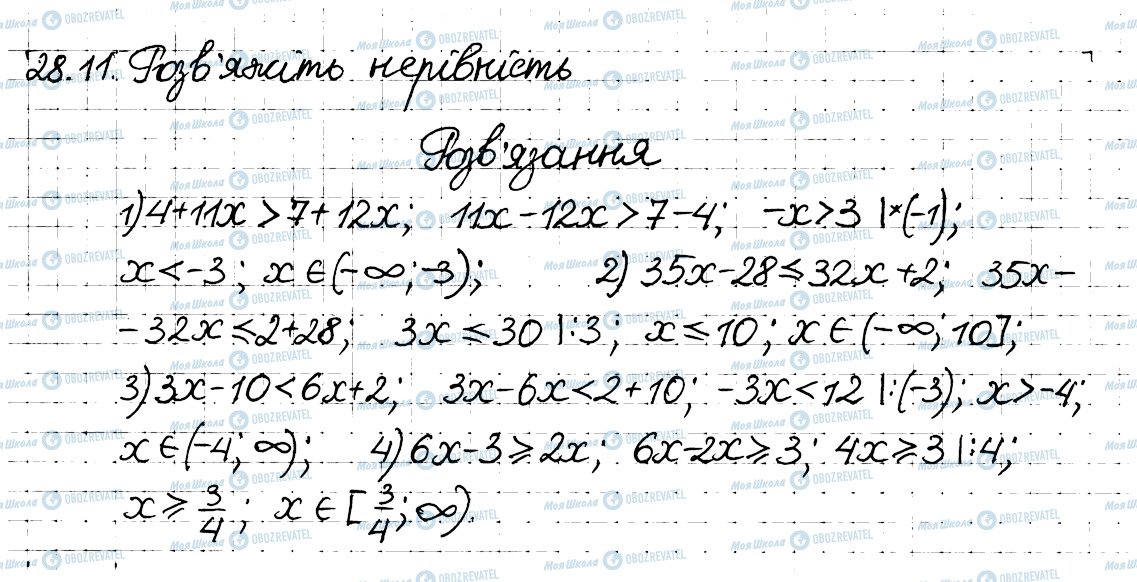 28.11. Розв'яжіть нерівність
Розв'язання
1) 4+11x > 7+12x; 11x-12x > 7-4; -x > 3 |*(-1);
x < -3; x ∈ (-∞; -3); 2) 35x-28 ≤ 32x+2; 35x-
-32x ≤ 2+28; 3x ≤ 30 |:3; x ≤ 10; x ∈ (-∞; 10];
3) 3x-10 < 6x+2; 3x-6x < 2+10; -3x < 12 |:(-3); x > -4;
x ∈ (-4; ∞); 4) 6x-3 ≥ 2x; 6x-2x ≥ 3; 4x ≥ 3 |:4;
x ≥ 3/4; x ∈ [3/4; ∞).
Моя Школа OBOZREVATEL